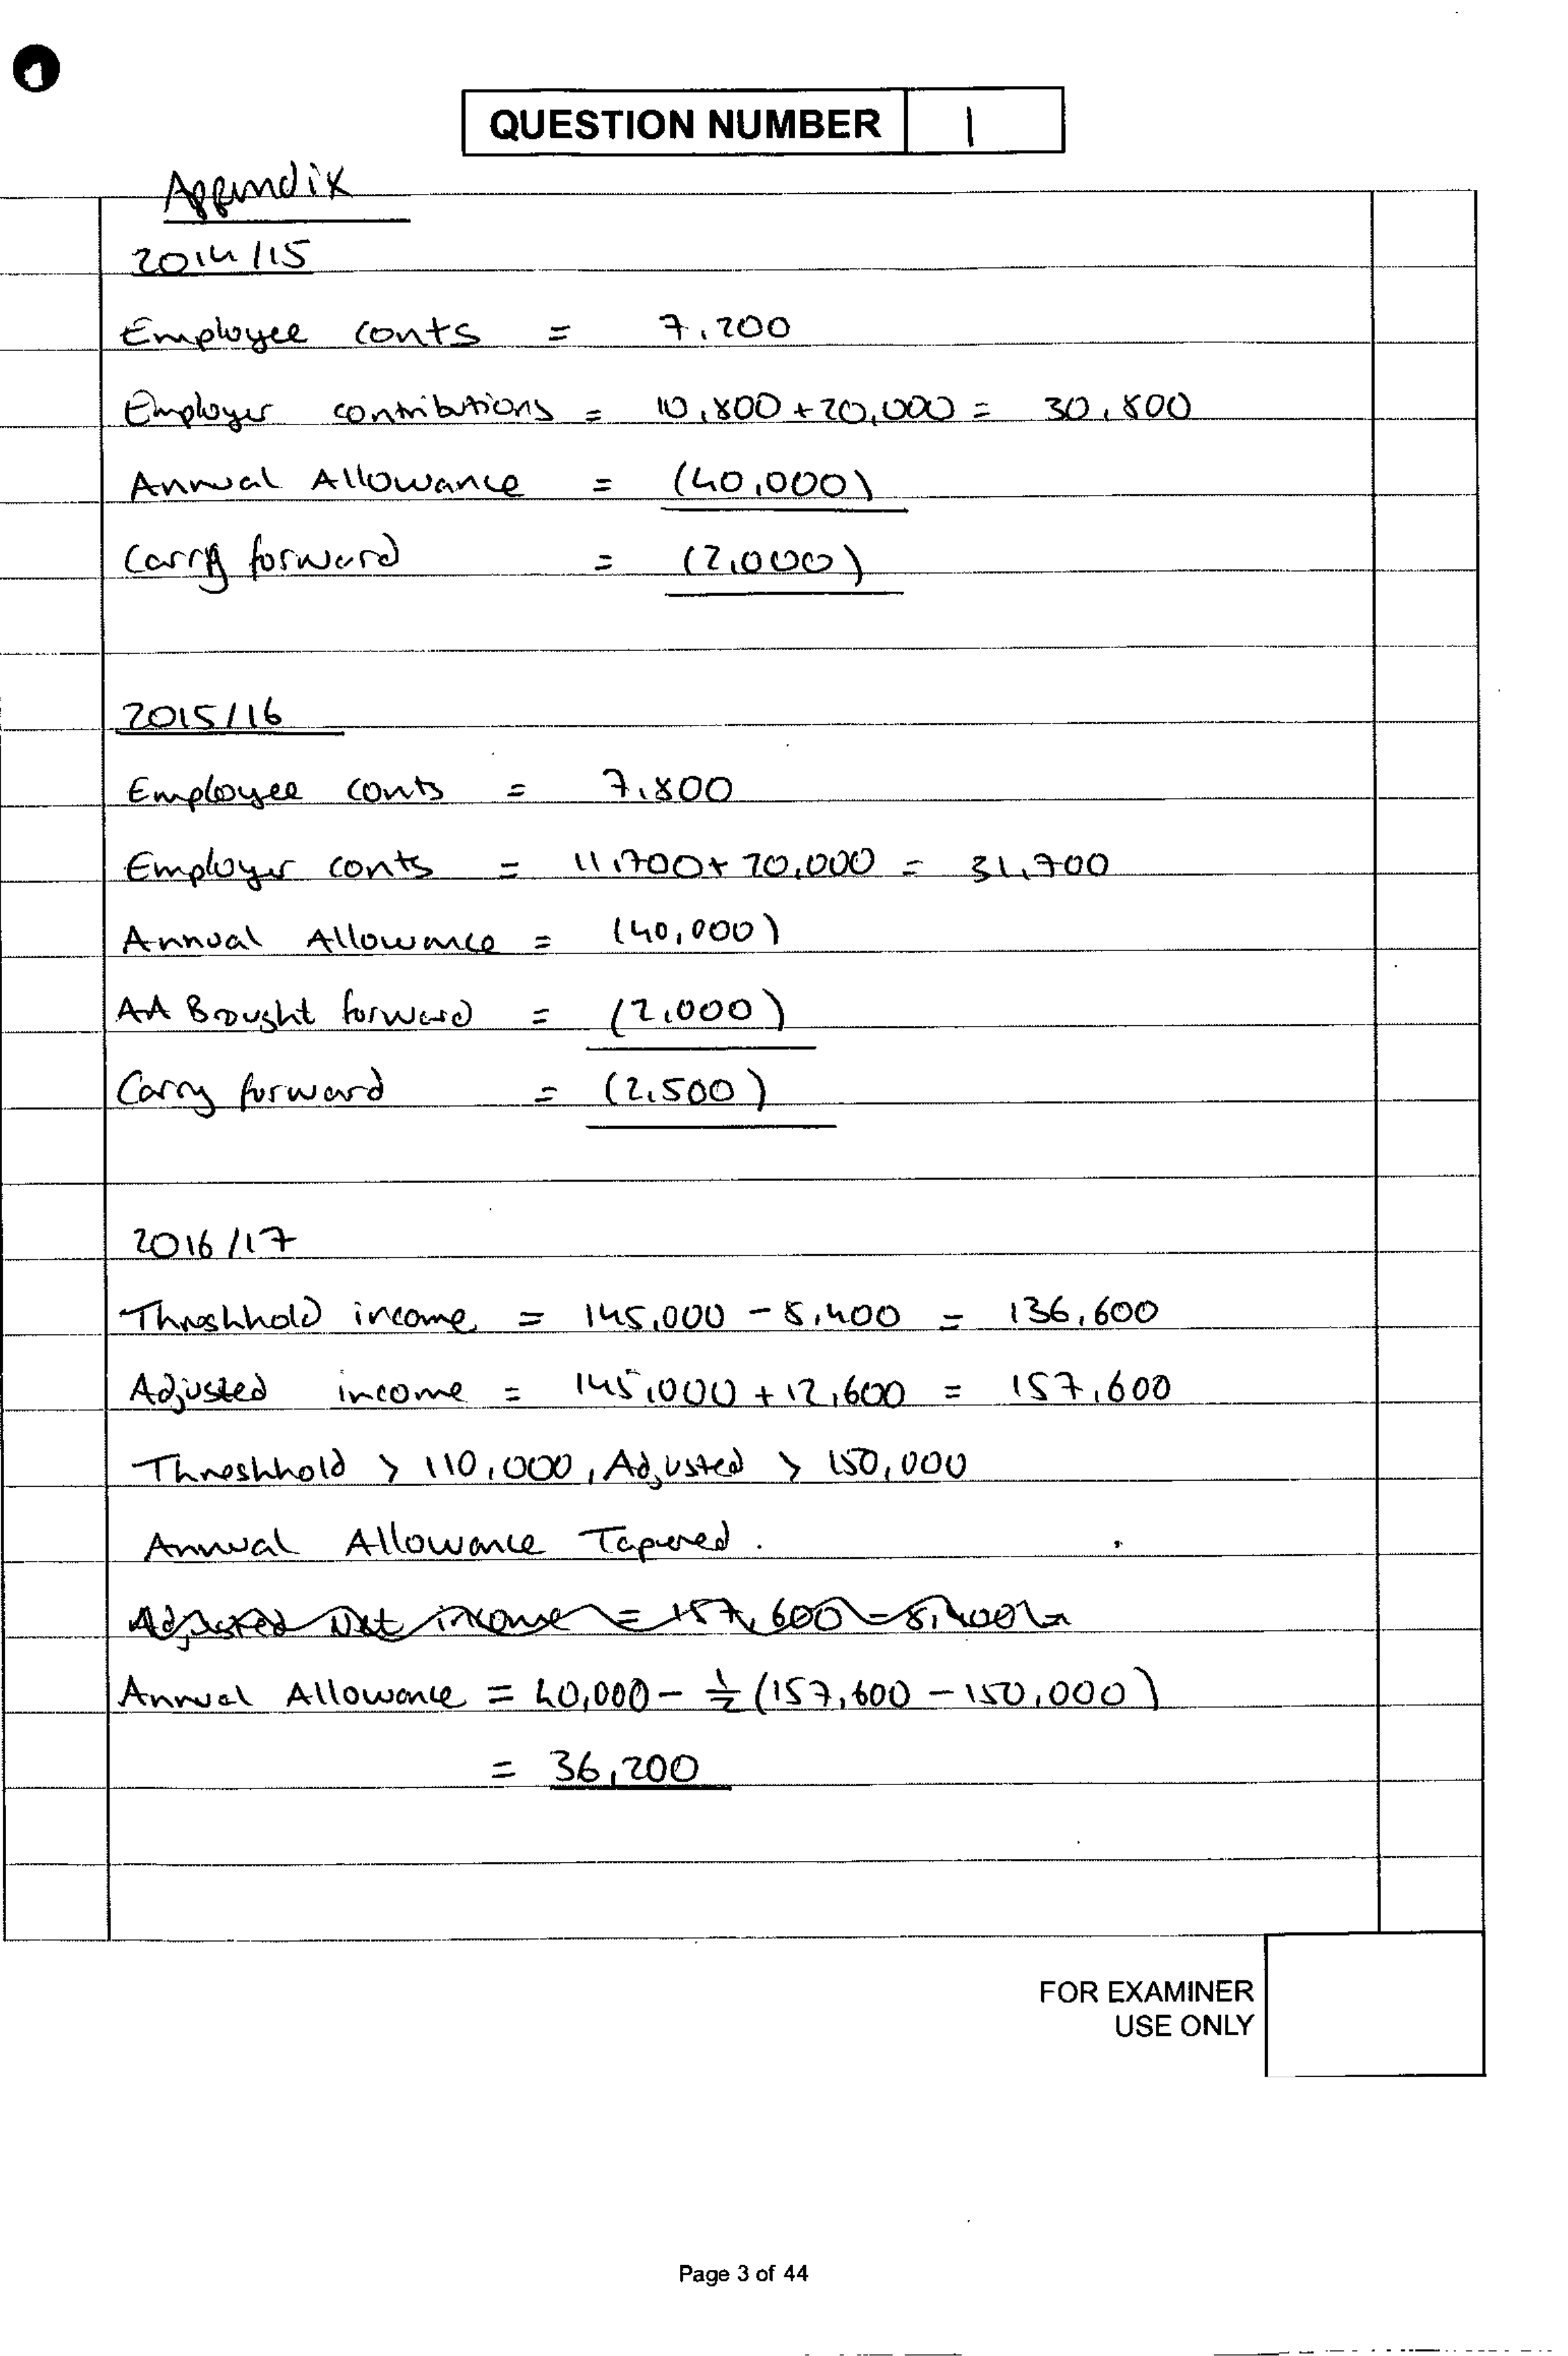 1
QUESTION NUMBER 1
Appendix
2014/15
Employee conts = 7,200
Employer contributions = 10,800 + 20,000 = 30,800
Annual Allowance = (40,000)
Carry forward = (2,000)
2015/16
Employee conts = 7,800
Employer conts = 11,700 + 20,000 = 31,700
Annual Allowance = (40,000)
AA Brought forward = (2,000)
Carry forward = (2,500)
2016/17
Threshhold income = 145,000 - 8,400 = 136,600
Adjusted income = 145,000 + 12,600 = 157,600
Threshhold > 110,000, Adjusted > 150,000
Annual Allowance Tapered.
Adjusted Net income = 157,600 - 8,400
Annual Allowance = 40,000 - ½ (157,600 - 150,000)
= 36,200
FOR EXAMINER
USE ONLY
Page 3 of 44